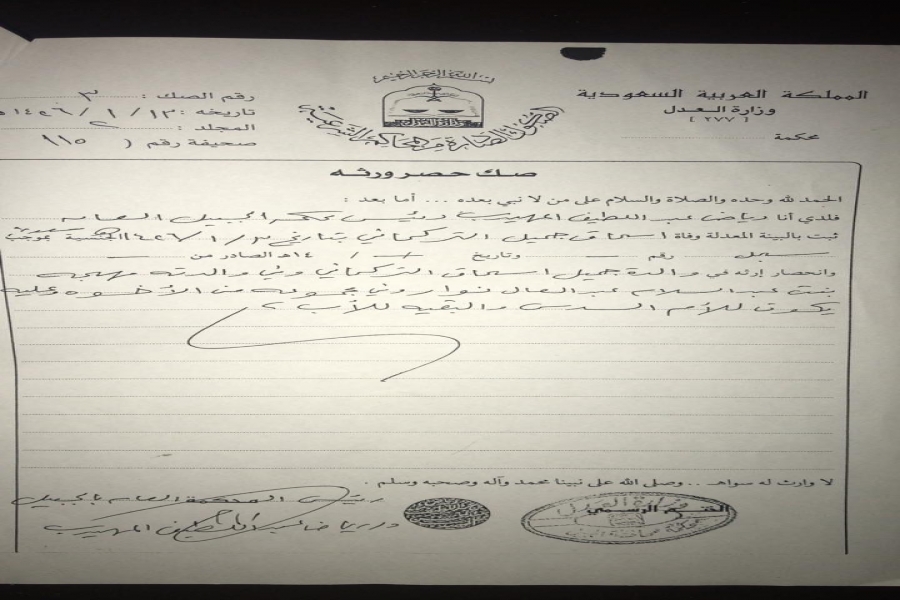 بسم الله الرحمن الرحيم
المملكة العربية السعودية
وزارة العدل
( ٢٧٧ )
محكمة
الصكوك الصادرة من المحاكم الشرعية
رقم الصك : ٣
تاريخه : ١٣ / ١ / ١٤٢٦ هـ
المجلد : ٢
صحيفة رقم ( ١١٥
صك حصر ورثه
الحمد لله وحده والصلاة والسلام على من لا نبي بعده ... أما بعد :
فلدي أنا رياض عبد اللطيف المهيدب رئيس محكمة الجبيل العامه
ثبت بالبينة المعدلة وفاة اسماق جميل التركماني بتاريخ ٣ / ١ / ١٤٢٦هـ الجنسية بموجب
سجل رقم — وتاريخ / / ١٤هـ الصادر من —
وانحصار إرثه في والده جميل اسماق التركماني وفي والدته مهجه
بنت عبد السلام عبد العال نوار وفي مجموعه من الأخوه وعليه
يكون للأم السدس والبقيه للأب
لا وارث له سواهـ .. وصلى الله على نبينا محمد وآله وصحبه وسلم .
رئيس المحكمة العامه بالجبيل
رياض عبد اللطيف المهيدب
الختم الرسمي
وزارة العدل